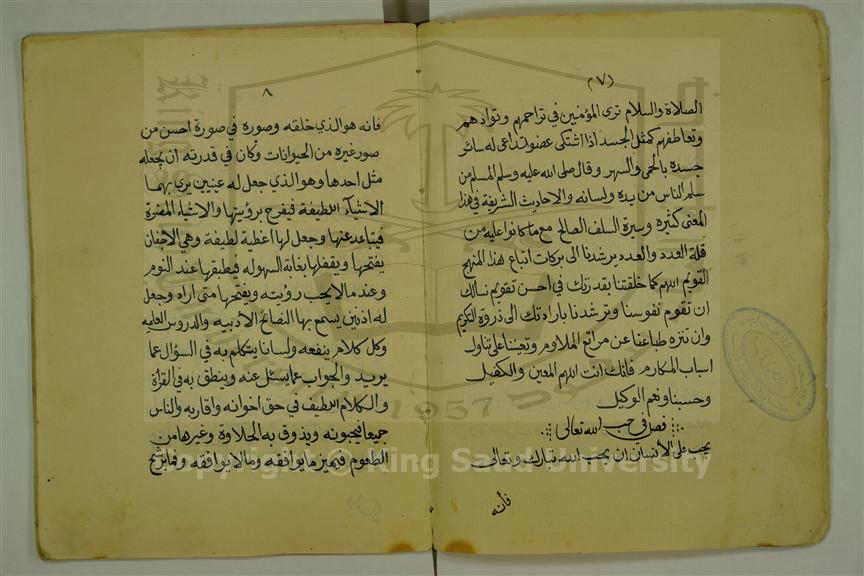 (٧)
الصلاة والسلام ترى المؤمنين في تراحمهم وتوادهم
وتعاطفهم كمثل الجسد اذا اشتكى عضو تداعى له سائر
جسده بالحمى والسهر وقال صلى الله عليه وسلم المسلم من
سلم الناس من يده ولسانه والاحاديث الشريفة في هذا
المعنى كثيره وسيرة السلف الصالح مع ما كانوا عليه من
قلة العدد والعدد مرشدنا الى بركات اتباع هذا المنهج
القويم اللهم كما خلقتنا بقدرتك في احسن تقويم نسألك
ان تقوم نفوسنا وترشدنا بارادتك الى ذروة التكريم
وان تنزه طباعنا عن مراتع الملاوم وتعيننا على تناول
اسباب المكارم فانك انت اللهم المعين والكفيل
وحسبنا وهم الوكيل
فصل في حب الله تعالى
يجب على الأنسان ان يحب الله تبارك وتعالى
فأنه
٨
فانه هو الذي خلقه وصوره في صورة احسن من
صور غيره من الحيوانات وكان في قدرته ان يجعله
مثل احدها وهو الذي جعل له عينين يرى بهما
الاشيآء اللطيفة فيفرح برؤيتها والاشياء المضرة
فيتباعد عنها وجعل لها اغطية لطيفة وهي الاجفان
يفتحها ويقفلها بغاية السهوله فيطبقها عند النوم
وعند ما لا يحب رؤيته ويفتحها متى اراد وجعل
له اذنين يسمع بها النصائح الادبيه والدروس العلميه
وكل كلام ينفعه ولسانا يتكلم به في السؤال عما
يريد والجواب عما يسئل عنه وينطق به في القرأة
والكلام اللطيف في حق اخوانه واقاربه والناس
جميعا فيحبونه ويذوق به الحلاوة وغيرها من
الطعوم فيميز ما يوافقه وما لا يوافقه وفما
Copyright © King Saud University
1957